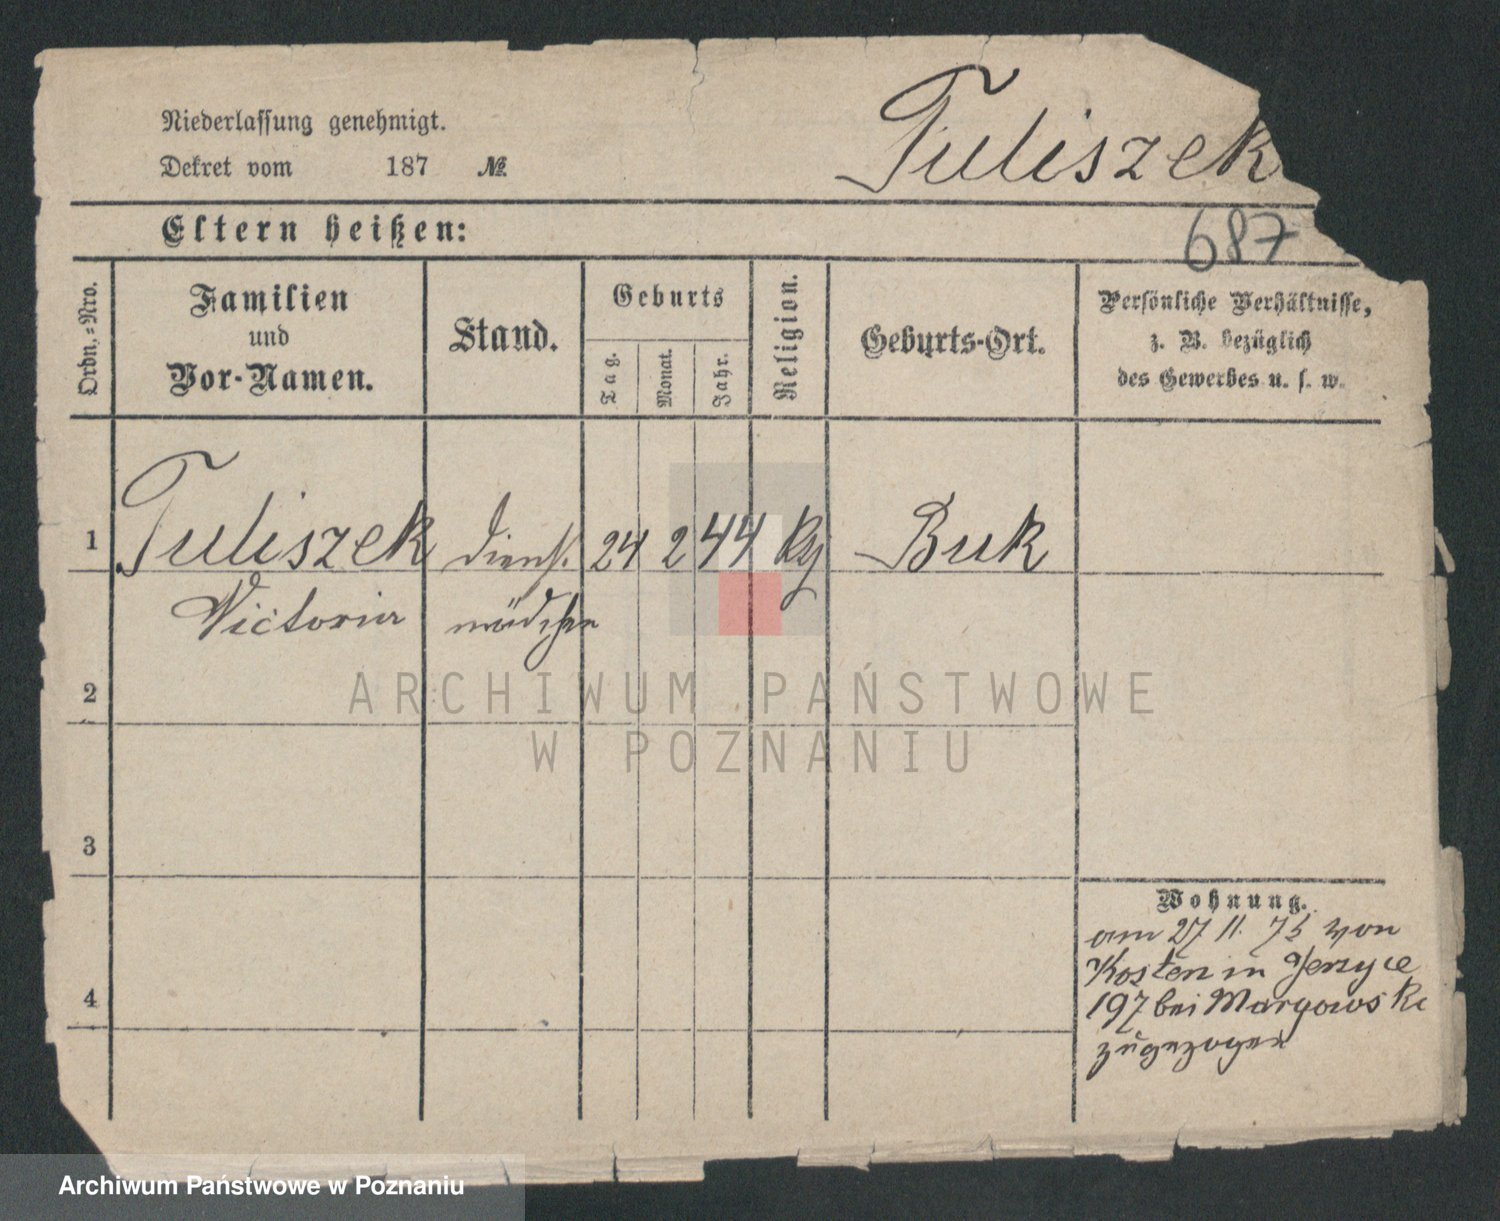 Niederlassung genehmigt.
Dekret vom 187 №
Tuliszek
687
Eltern heißen:
Ordn.-Nro.
Familien
und
Vor-Namen.
Stand.
Geburts
Tag.
Monat.
Jahr.
Religion.
Geburts-Ort.
Persönliche Verhältnisse,
z. B. bezüglich
des Gewerbes u. s. w.
1 Tuliszek Dienst 24 2 44 Buk
Victoria mädchen
2
3
4
Wohnung.
am 27 11. 75 von
Kosten in Jerzyce
197 bei Margowski
zugezogen
ARCHIWUM PAŃSTWOWE
W POZNANIU
Archiwum Państwowe w Poznaniu